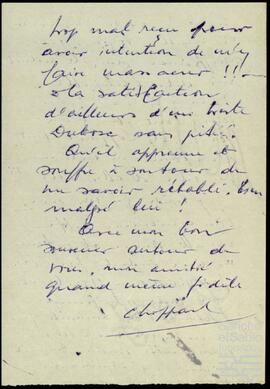 trop mal reçu pour
avoir intention de m'y
faire massacrer !!
à la satisfaction
d'ailleurs d'un triste
Dubosc sans pitié.
Qu'il apprenne et
souffre à son tour de
me savoir rétabli. Bien
malgré lui !
Avec mon bon
souvenir autour de
vous, mon amitié
quand même fidèle
Choppard